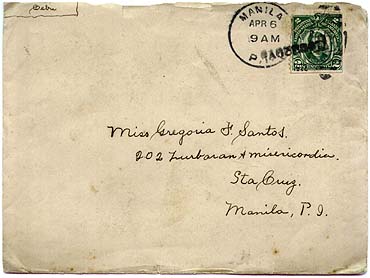 Cebu
MANILA
APR 6
9 AM
P.I.
Miss Gregoria F. Santos.
202 Zurbaran & Misericordia.
Sta Cruz.
Manila, P. I.